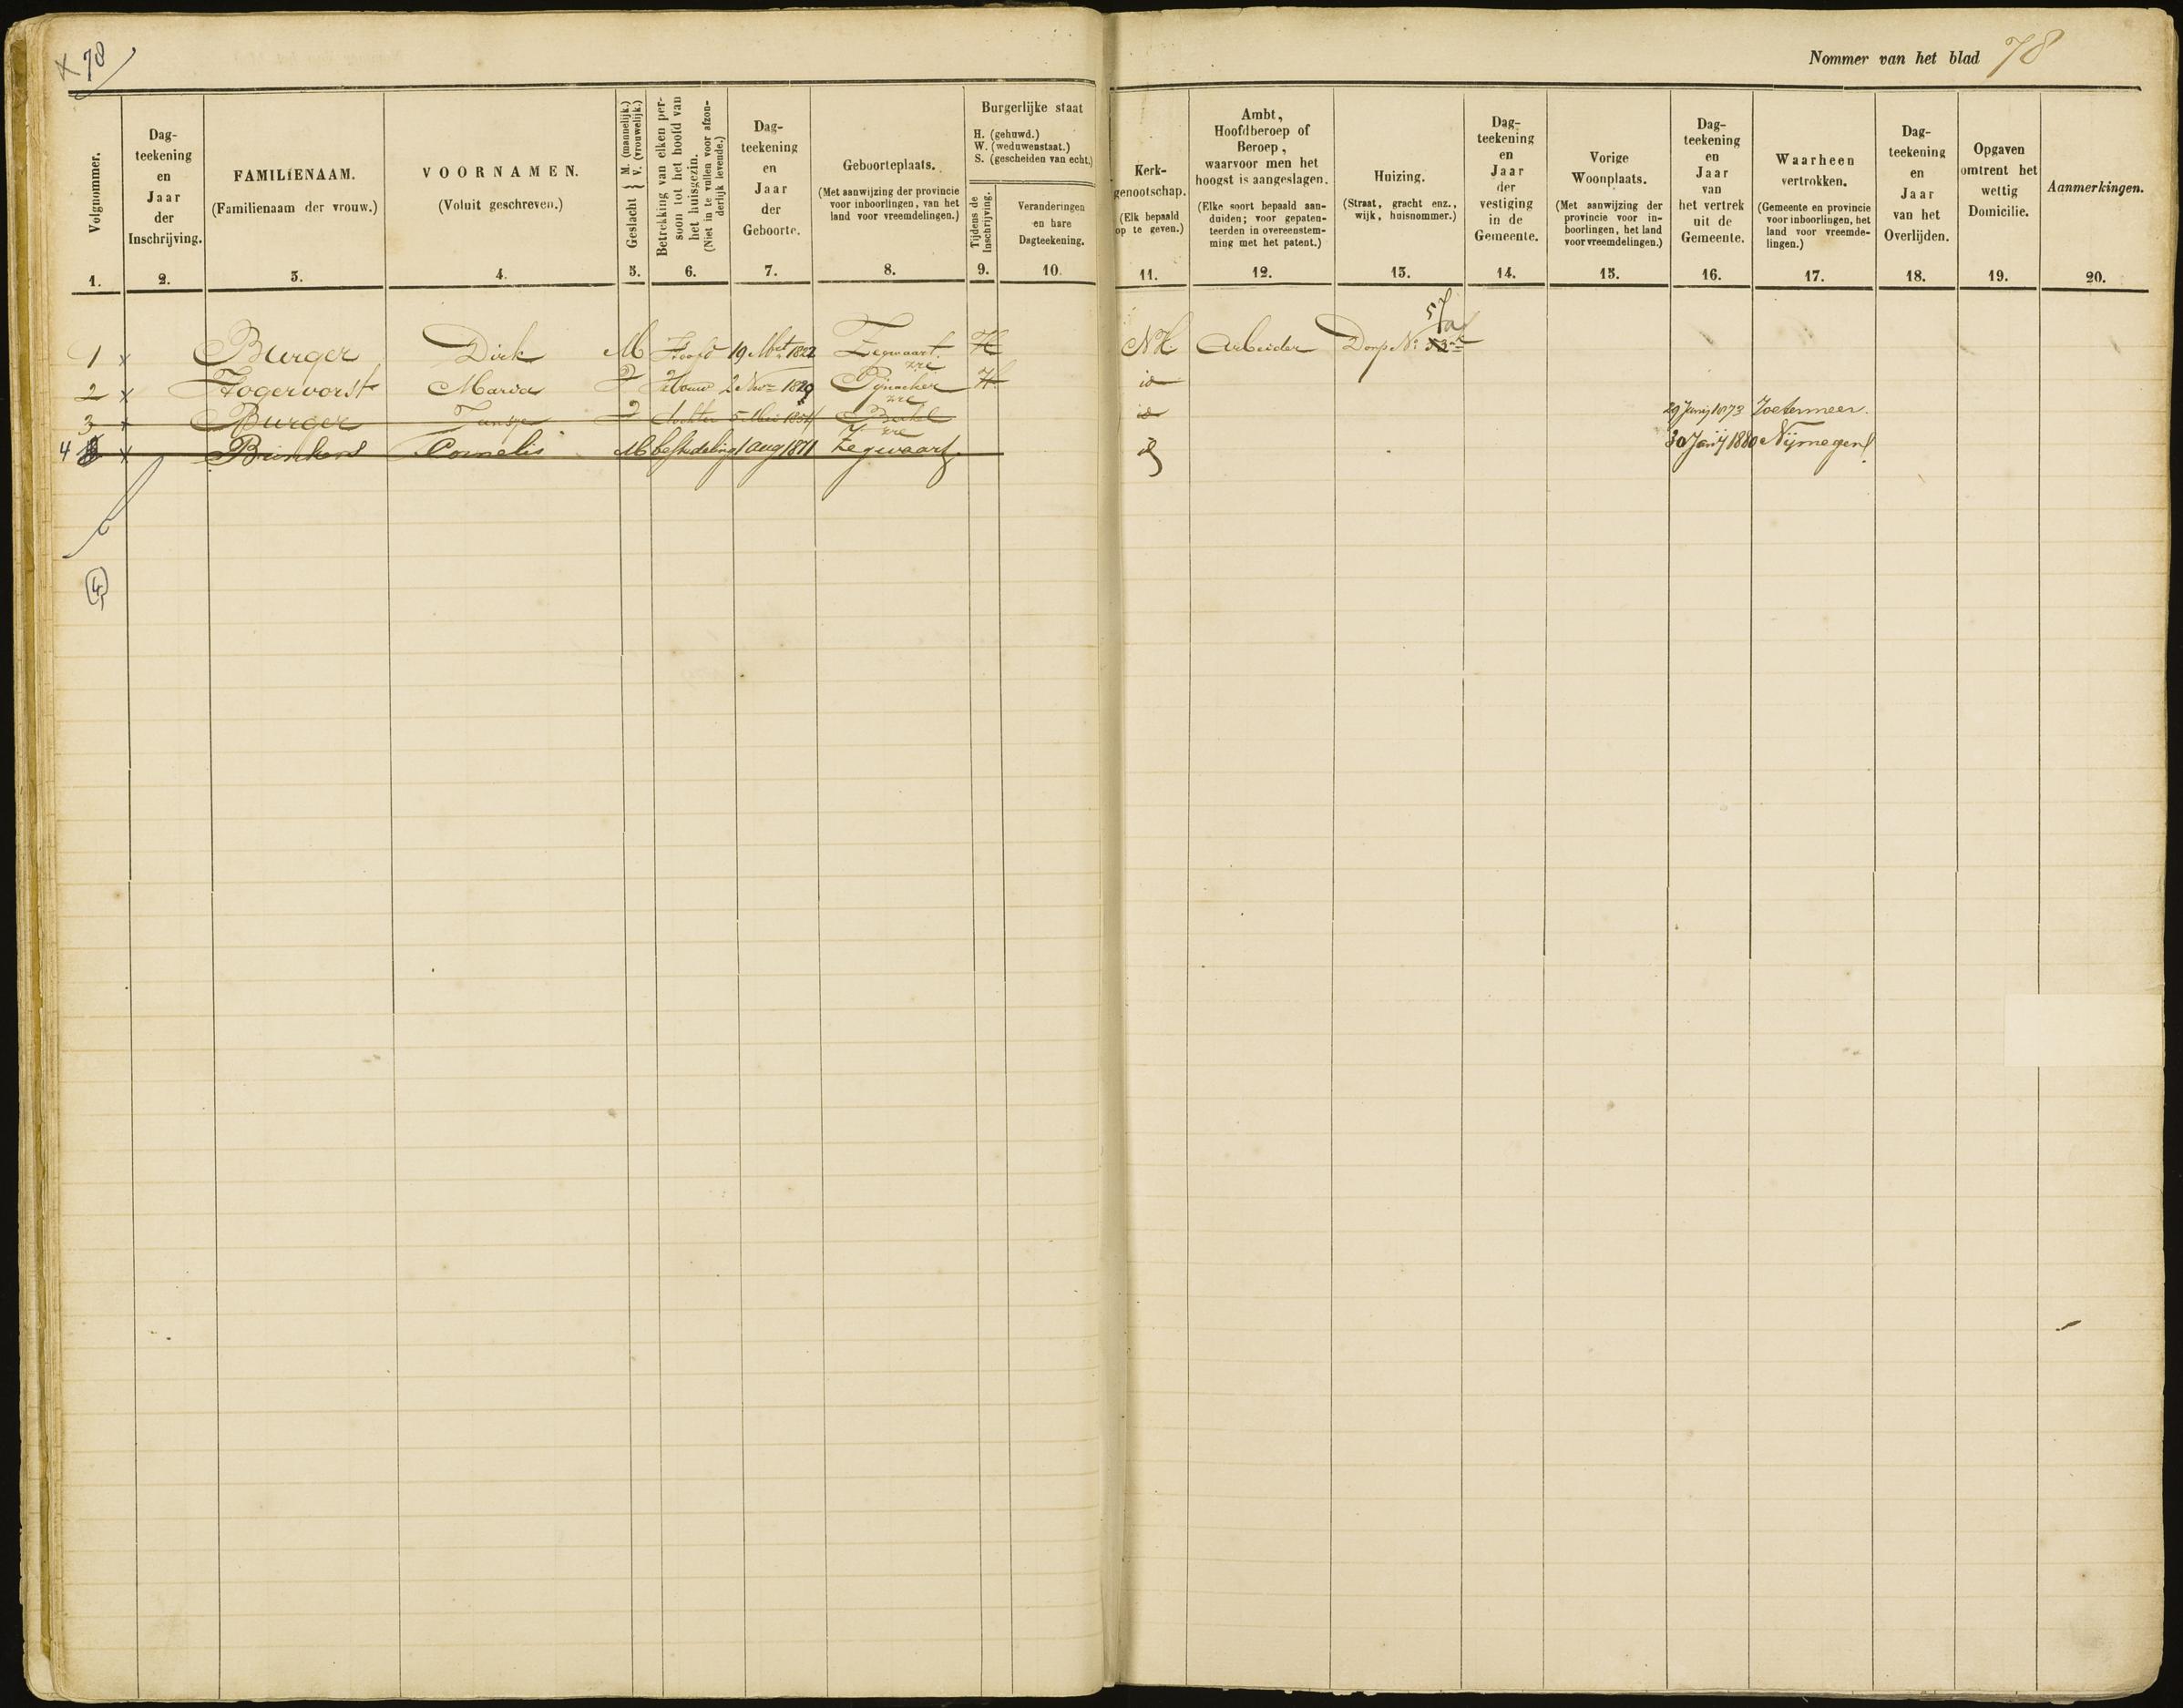 x 78
Nommer van het blad 78
Volgnommer.
1.
Dag-
teekening
en
Jaar
der
Inschrijving.
2.
FAMILIENAAM.
(Familienaam der vrouw.)
3.
VOORNAMEN.
(Voluit geschreven.)
4.
Geslacht { M. (mannelijk.)
V. (vrouwelijk.)
5.
Betrekking van elken per-
soon tot het hoofd van
het huisgezin.
(Niet in te vullen voor afzon-
derlijk levende.)
6.
Dag-
teekening
en
Jaar
der
Geboorte.
7.
Geboorteplaats.
(Met aanwijzing der provincie
voor inboorlingen, van het
land voor vreemdelingen.)
8.
Burgerlijke staat
H. (gehuwd.)
W. (weduwenstaat.)
S. (gescheiden van echt.)
Tijdens de
Inschrijving.
9.
Veranderingen
en hare
Dagteekening.
10.
Kerk-
genootschap.
(Elk bepaald
op te geven.)
11.
Ambt,
Hoofdberoep of
Beroep,
waarvoor men het
hoogst is aangeslagen.
(Elke soort bepaald aan-
duiden; voor gepaten-
teerden in overeenstem-
ming met het patent.)
12.
Huizing.
(Straat, gracht enz.,
wijk, huisnommer.)
13.
Dag-
teekening
en
Jaar
der
vestiging
in de
Gemeente.
14.
Vorige
Woonplaats.
(Met aanwijzing der
provincie voor in-
boorlingen, het land
voor vreemdelingen.)
15.
Dag-
teekening
en
Jaar
van
het vertrek
uit de
Gemeente.
16.
Waarheen
vertrokken.
(Gemeente en provincie
voor inboorlingen, het
land voor vreemde-
lingen.)
17.
Dag-
teekening
en
Jaar
van het
Overlijden.
18.
Opgaven
omtrent het
wettig
Domicilie.
19.
Aanmerkingen.
20.
1 x Burger Dirk M Hoofd 19 Mrt 1822 Zegwaart. H NH Arbeider Dorp No 57a
2 x Hogervorst Maria V Vrouw 2 Nov 1829 Pijnacker H. id
3 x Burger Jansje V dochter 5 Mei 1854 Berkel id 29 Junij 1873 Zoetermeer.
4 x Brinkers Cornelis M bestedeling 1 Aug 1871 Zegwaart. id 30 Janij 1880 Nijmegen
4